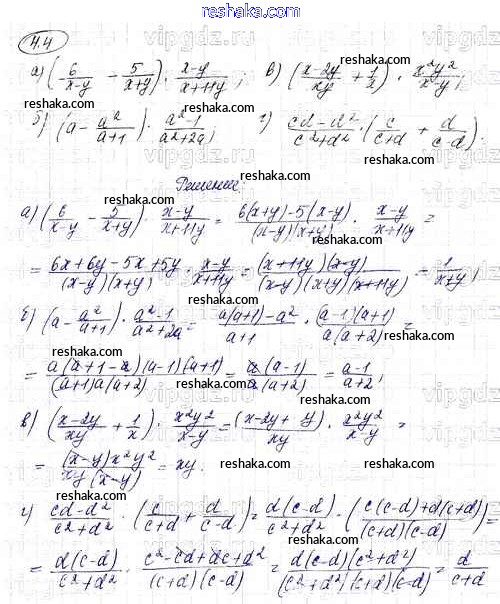 www.reshak.ru
4.4
а) (6/(x-y) - 5/(x+y)) · (x-y)/(x+11y); в) ((x-2y)/(xy) + 1/x) · x²y²/(x-y);
б) (a - a²/(a+1)) · (a²-1)/(a²+2a); г) (cd-d²)/(c²+d²) · (c/(c+d) + d/(c-d)).
Решение:
а) (6/(x-y) - 5/(x+y)) · (x-y)/(x+11y) = (6(x+y)-5(x-y))/((x-y)(x+y)) · (x-y)/(x+11y) =
= (6x+6y-5x+5y)/((x-y)(x+y)) · (x-y)/(x+11y) = ((x+11y)(x-y))/((x-y)(x+y)(x+11y)) = 1/(x+y);
б) (a - a²/(a+1)) · (a²-1)/(a²+2a) = (a(a+1)-a²)/(a+1) · ((a-1)(a+1))/(a(a+2)) =
= (a(a+1-a)(a-1)(a+1))/((a+1)a(a+2)) = (a(a-1))/(a(a+2)) = (a-1)/(a+2);
в) ((x-2y)/(xy) + 1/x) · x²y²/(x-y) = (x-2y+y)/(xy) · x²y²/(x-y) =
= ((x-y)x²y²)/(xy(x-y)) = xy.
г) (cd-d²)/(c²+d²) · (c/(c+d) + d/(c-d)) = (d(c-d))/(c²+d²) · ((c(c-d)+d(c+d))/((c+d)(c-d))) =
= (d(c-d))/(c²+d²) · (c²-cd+dc+d²)/((c+d)(c-d)) = (d(c-d)(c²+d²))/((c²+d²)(c+d)(c-d)) = d/(c+d)